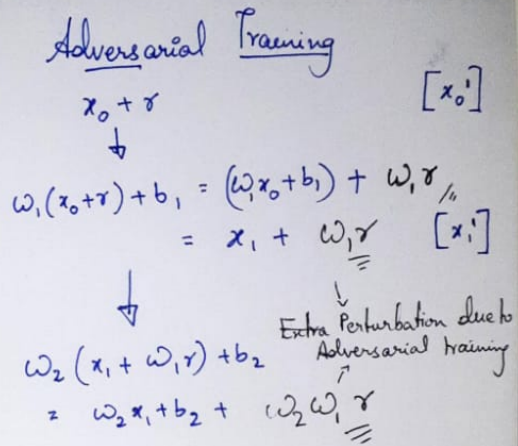 Adversarial Training
x₀ + r [x₀']
↓
ω₁(x₀+r) + b₁ = (ω₁x₀+b₁) + ω₁r
= x₁ + ω₁r [x₁']
↓
Extra Perturbation due to
Adversarial training
ω₂(x₁ + ω₁r) + b₂
= ω₂x₁ + b₂ + ω₂ω₁r